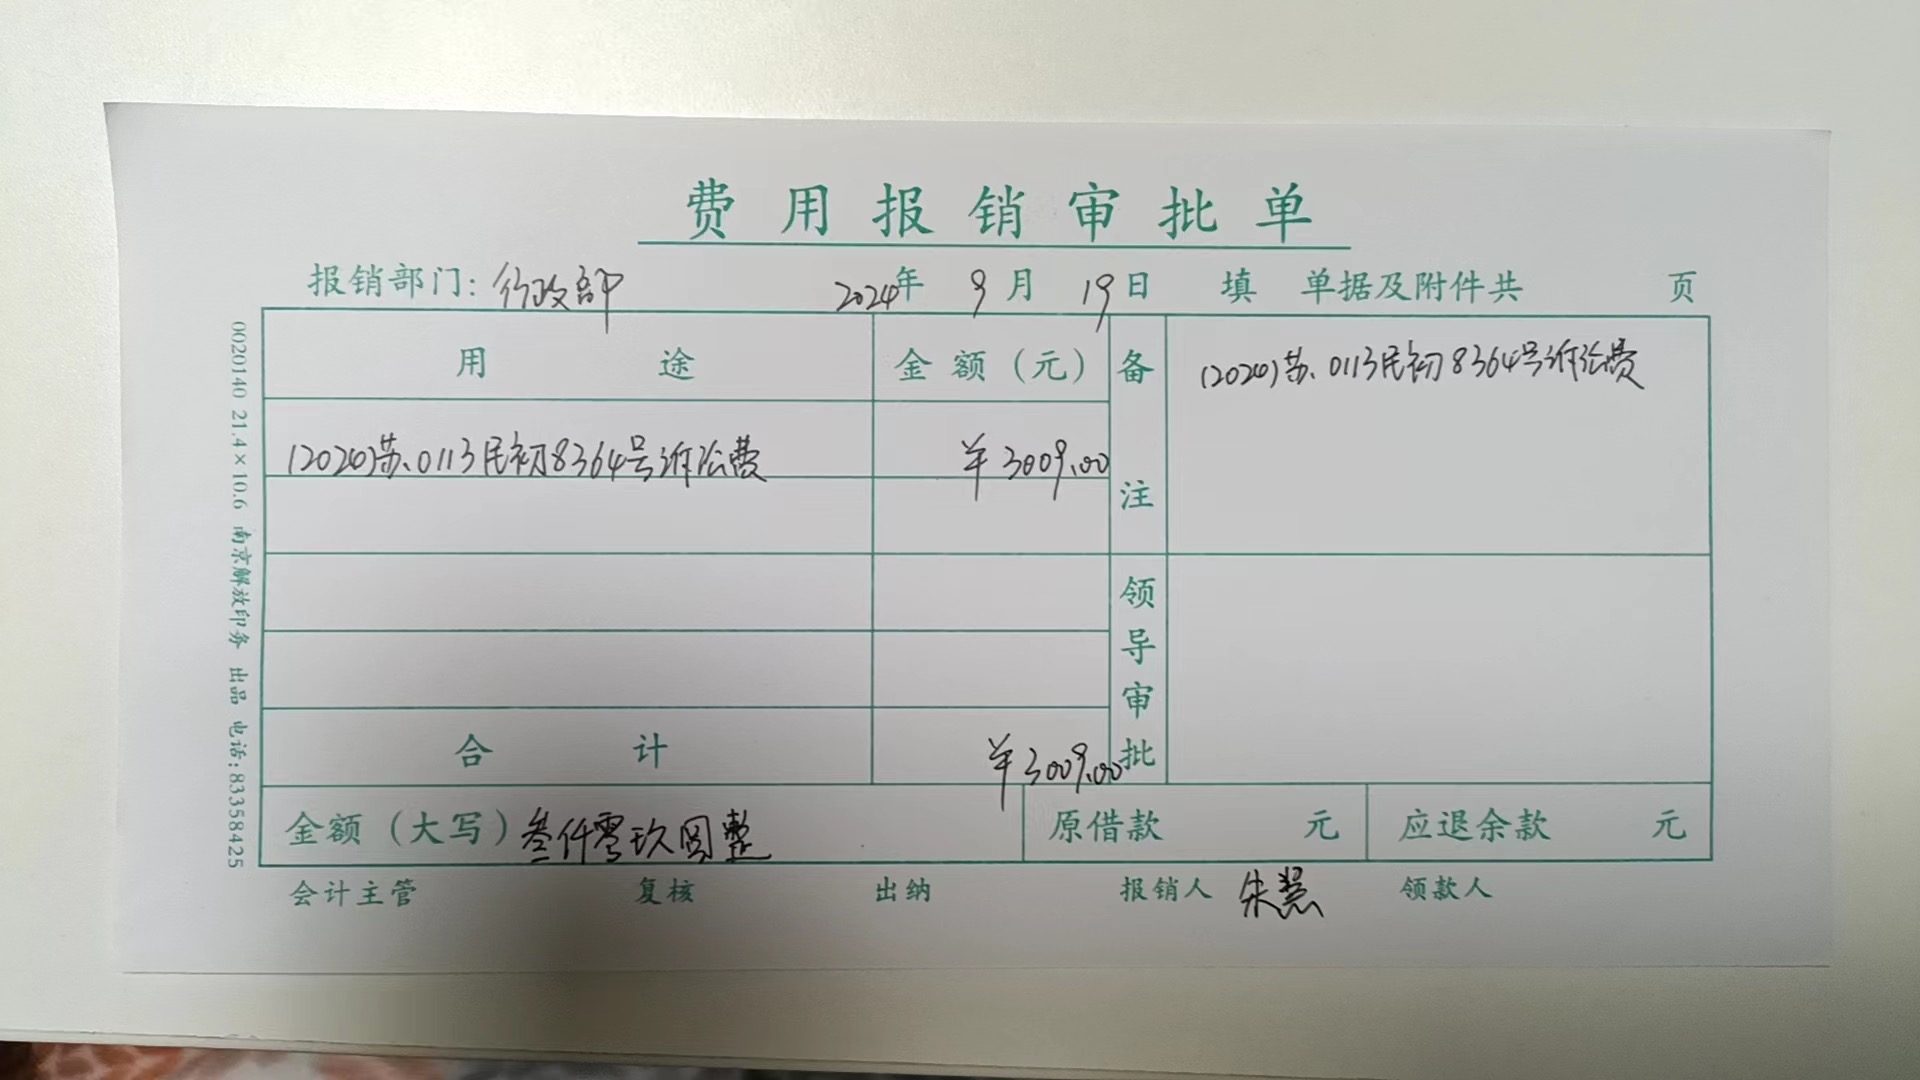 费用报销审批单
报销部门：行政部 2024年 9月 19日 填 单据及附件共 页
用途 金额（元） 备注 (2024)苏.0113民初8364号诉讼费
(2024)苏.0113民初8364号诉讼费 ¥3009.00
领导审批
合计 ¥3009.00
金额（大写）叁仟零玖圆整 原借款 元 应退余款 元
会计主管 复核 出纳 报销人 朱慧 领款人
0020140 21.4×10.6 南京解放印务 出品 电话:83358425